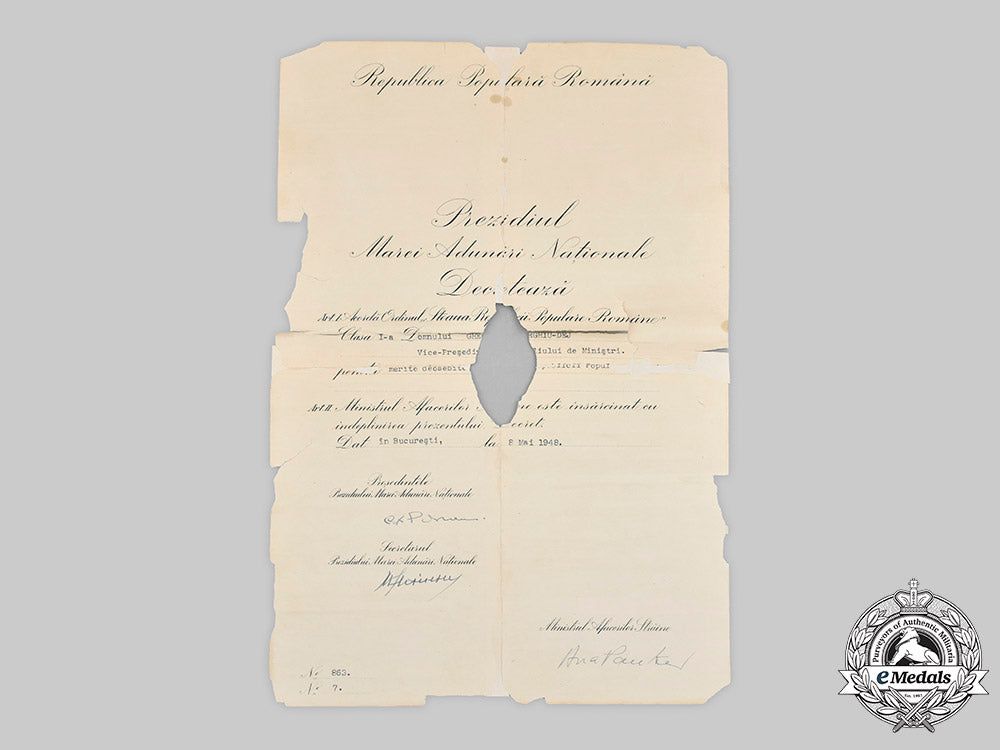 Republica Populară Română
Prezidiul
Marei Adunări Naționale
Decretează
Art. I. Acordă Ordinul „Steaua Re cii Populare Române"
Clasa I-a Domnului GHE RGHIU-DEJ
Vice-Președin liului de Miniștri.
pentru merite deosebite blicii Popul
Art. II. Ministrul Afacerilor ne este însărcinat cu
îndeplinirea prezentului Decret.
Dat în București, la 8 Mai 1948.
Președintele
Prezidiului Marei Adunări Naționale
Secretarul
Prezidiului Marei Adunări Naționale
Ministrul Afacerilor Străine
Ana Pauker
No 863.
No 7.
Purveyors of Authentic Militaria
eMedals